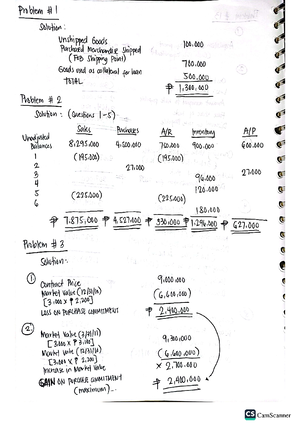 Problem # 1
Solution:
Unshipped Goods 100,000
Purchased Merchandise Shipped
(FOB Shipping Point) 700,000
Goods used as collateral for loan 500,000
TOTAL ₱ 1,300,000
Problem # 2
Solution: (Questions 1-5)
Sales Purchases A/R Inventory A/P
Unadjusted
Balances 8,295,000 4,500,000 750,000 900,000 600,000
1 (195,000) (195,000)
2 27,000 27,000
3 96,000
4 120,000
5 (225,000) (225,000)
6 180,000
₱ 7,875,000 ₱ 4,527,000 ₱ 330,000 ₱ 1,296,000 ₱ 627,000
Problem # 3
Solution:
①
Contract Price 9,000,000
Market Value (12/31/20) (6,600,000)
[3,000 x ₱ 2,200]
Loss on Purchase Commitment ₱ 2,400,000
②
Market Value 9,300,000
[3,000 x ₱ 3,100]
Market Value (12/31/20) (6,600,000)
[3,000 x ₱ 2,200]
Increase in Market Value ₱ 2,700,000
GAIN on Purchase Commitment ₱ 2,400,000
(maximum)
CS CamScanner